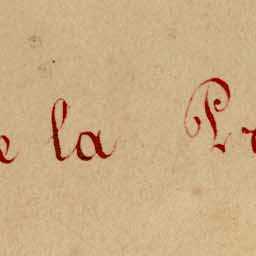 e la Pr